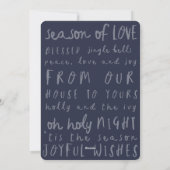 season of LOVE
BLESSED jingle bells
peace, love and joy
FROM OUR
HOUSE TO YOURS
holly and the ivy
oh holy NIGHT
'tis the season
JOYFUL WISHES